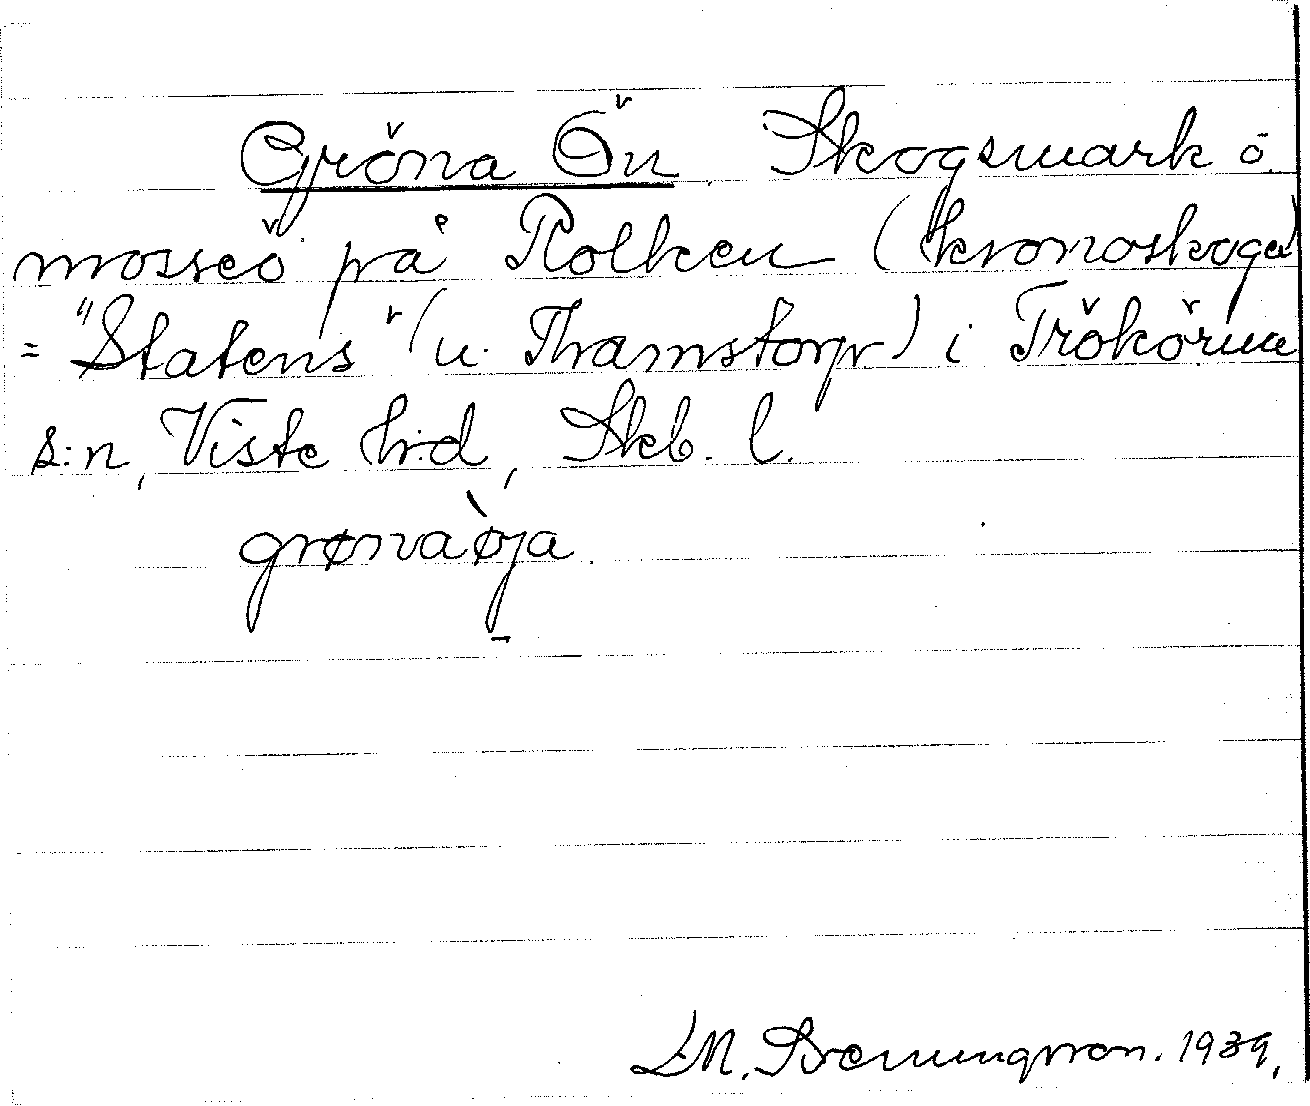 Gröna Ön. Skogsmark o.
mosseö på Rolken (kronoskogen
= "Statens" (u. Thamstorp) i Trökörna
s:n, Viste h:d, Skb. l.
grønaø̀ja.
L M. Svenungsson. 1939.